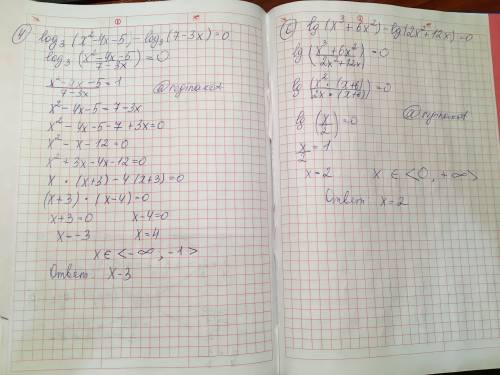 4) log₃(x²-4x-5)-log₃(7-3x)=0
log₃(x²-4x-5/7-3x)=0
x²-4x-5/7-3x=1
x²-4x-5=7-3x
x²-4x-5-7+3x=0
x²-x-12=0
x²+3x-4x-12=0
x·(x+3)-4(x+3)=0
(x+3)·(x-4)=0
x+3=0 x-4=0
x=-3 x=4
x∈<-∞,-1>
Ответ x-3
lg(x³+6x²)-lg(2x²+12x)=0
lg(x³+6x²/2x²+12x)=0
lg(x²·(x+6)/2x·(x+6))=0
lg(x/2)=0
x/2=1
x=2 x∈<0,+∞>
Ответ x=2